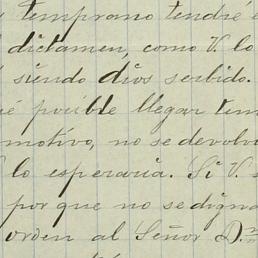 temprano tendré e
dictamen, como V. lo
siendo dios serbido.
posible llegar tem
motivo, no se devolv
lo esperaria. Si V.
por que no se digna
orden al Señor D.n